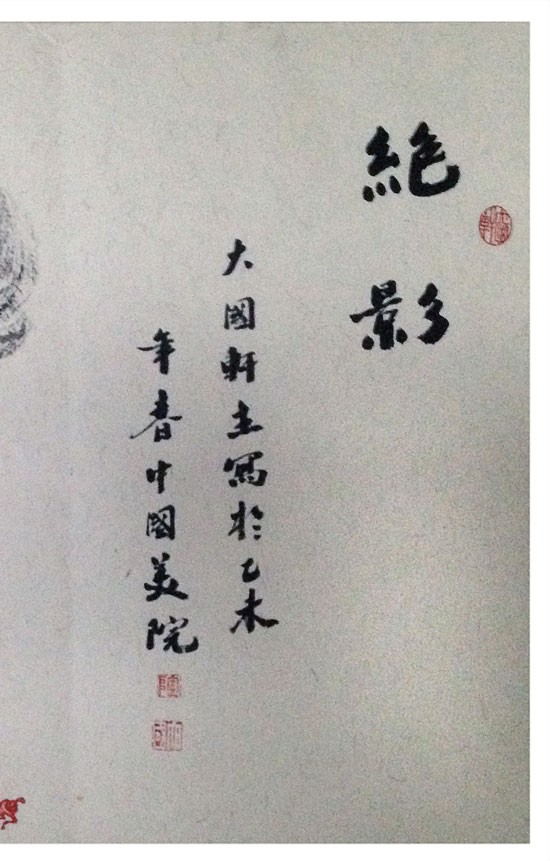 絕影
大國軒主寫於乙未
年春中國美院